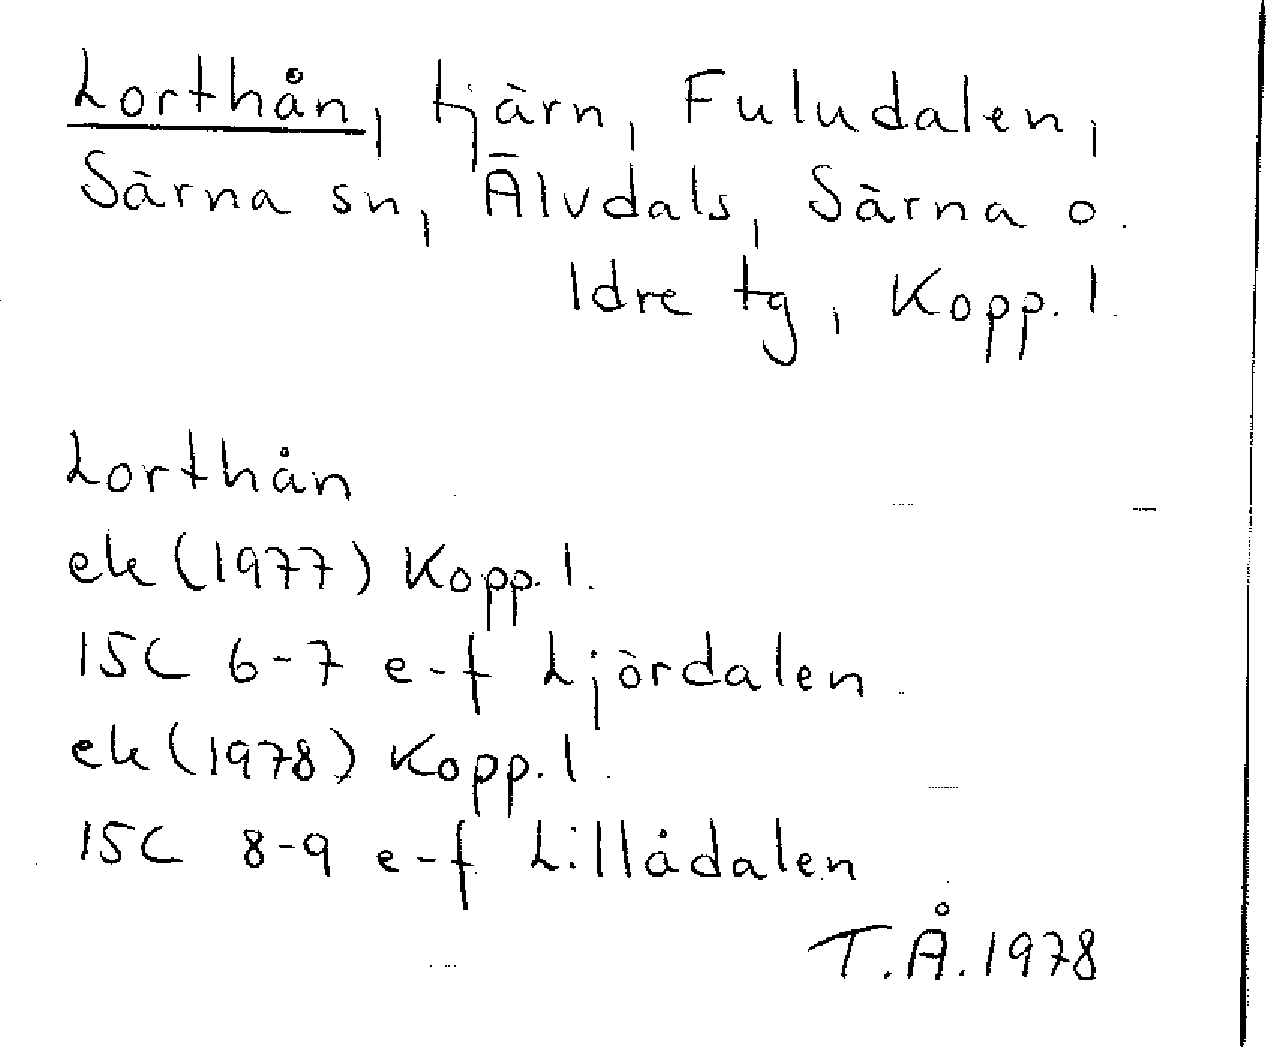 Lorthån, tjärn, Fuludalen,
Särna sn, Älvdals, Särna o.
Idre tg, Kopp. l.
Lorthån
ek (1977) Kopp. l.
15C 6-7 e-f Ljördalen
ek (1978) Kopp. l.
15C 8-9 e-f Lillådalen
T.Å. 1978